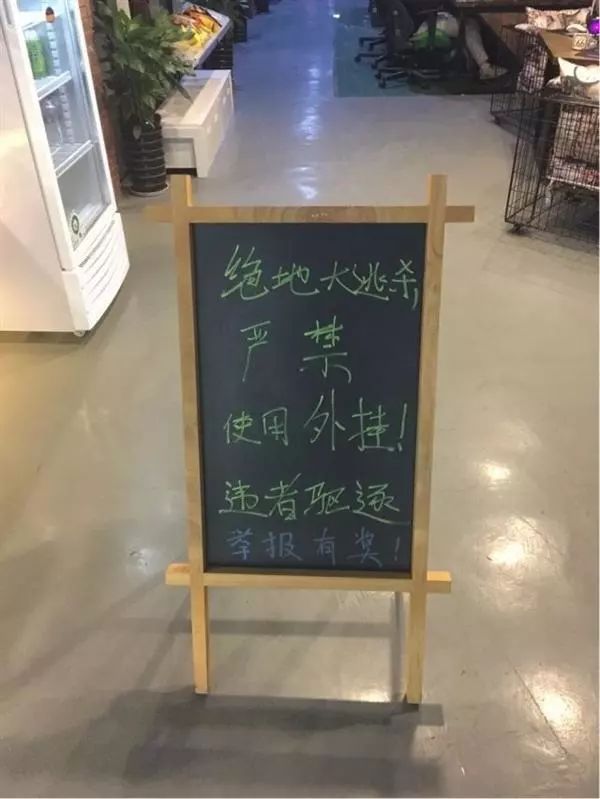 绝地大逃杀,
严禁
使用外挂!
违者驱逐
举报有奖!